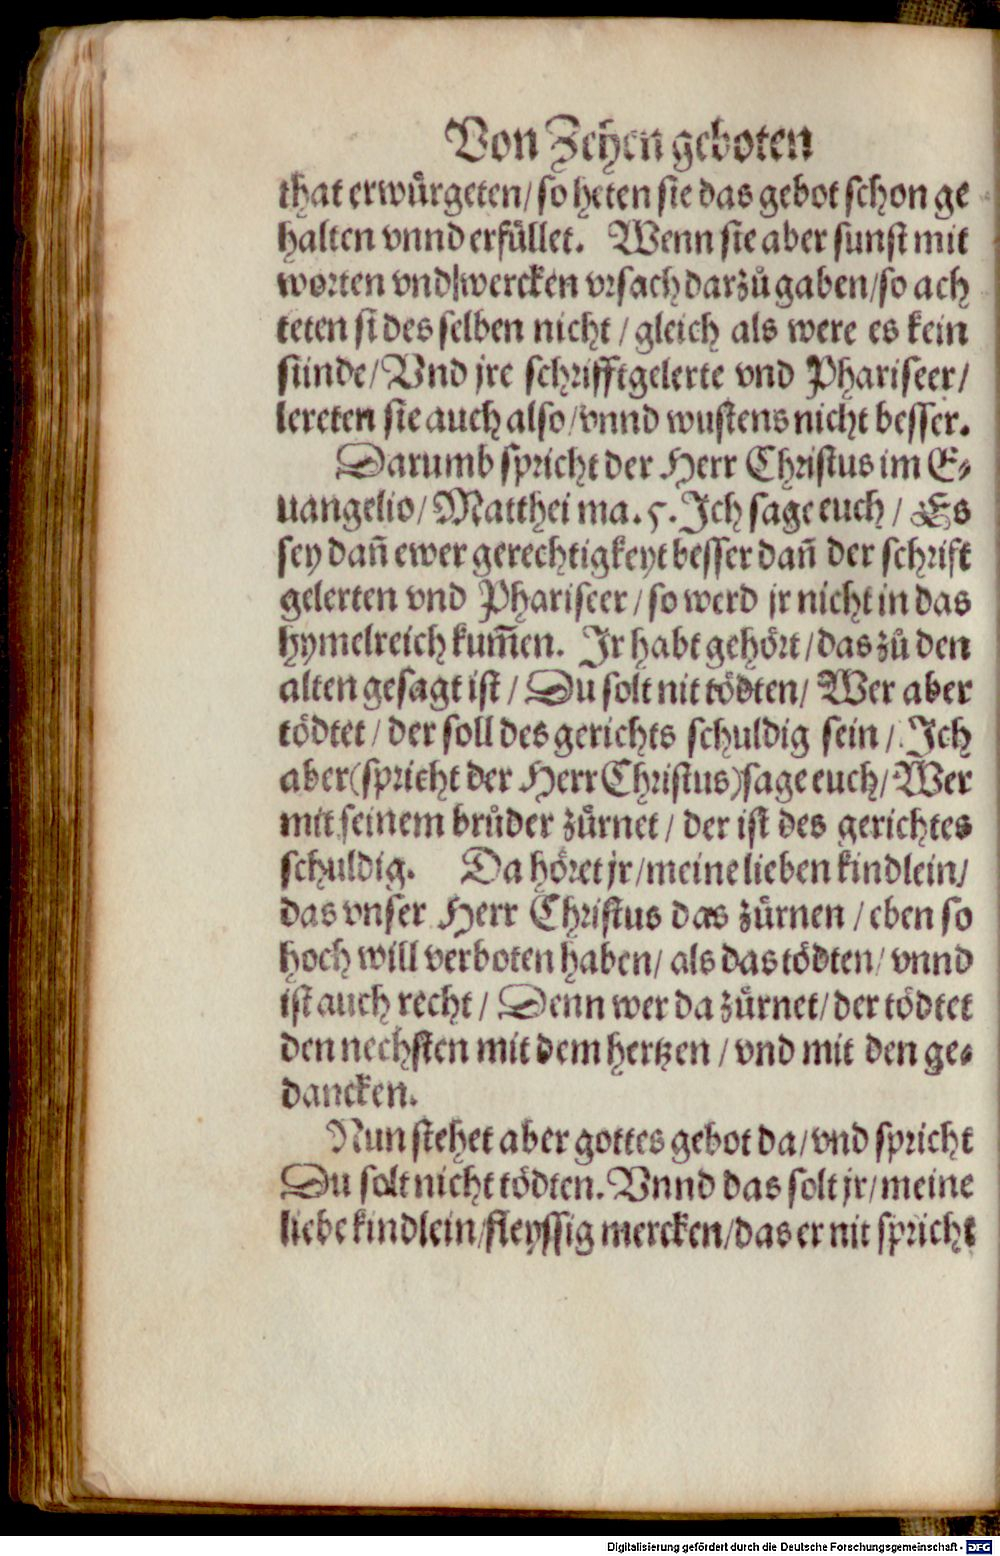 Von Zehen geboten
that erwürgeten/ so heten sie das gebot schon ge
halten vnnd erfüllet. Wenn sie aber sunst mit
worten vnd wercken vrsach darzů gaben/ so ach
teten si des selben nicht / gleich als were es kein
sünde/ Vnd jre schrifftgelerte vnd Phariseer/
lereten sie auch also/ vnnd wustens nicht besser.
Darumb spricht der Herr Christus im E⸗
uangelio/ Matthei ma. 5. Ich sage euch / Es
sey dañ ewer gerechtigkeyt besser dañ der schrift
gelerten vnd Phariseer / so werd jr nicht in das
hymelreich kum̃en. Ir habt gehört / das zů den
alten gesagt ist / Du solt nit tödten/ Wer aber
tödtet / der soll des gerichts schuldig sein / Ich
aber (spricht der Herr Christus) sage euch/ Wer
mit seinem brůder zürnet / der ist des gerichtes
schuldig. Da höret jr/ meine lieben kindlein/
das vnser Herr Christus das zürnen / eben so
hoch will verboten haben/ als das tödten/ vnnd
ist auch recht / Denn wer da zürnet/ der tödtet
den nechsten mit dem hertzen / vnd mit den ge⸗
dancken.
Nun stehet aber gottes gebot da/ vnd spricht
Du solt nicht tödten. Vnnd das solt jr/ meine
liebe kindlein/ fleyssig mercken/ das er nit spricht
Digitalisierung gefördert durch die Deutsche Forschungsgemeinschaft - DFG